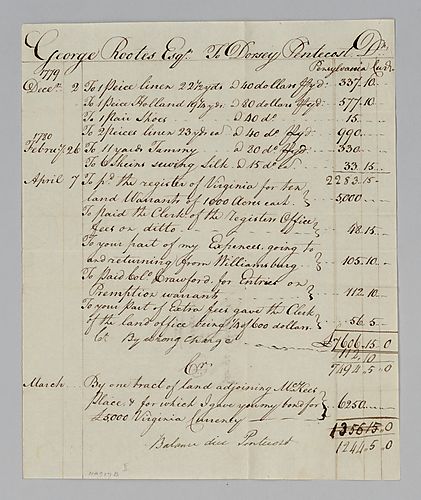 George Rootes Esqr. To Dorsey Pentecost Dr.
1779 Pensylvania Curr.
Decr. 2 To 1 Peice linen 22½ yds @ 40 dollars Pyd: 337.10
To 1 Peice Holland 19¼ yds @ 80 dollars Pyd: 577.10
To 1 Pair Shoes @ 40 do. 15
To 2 Pieces linen 23 yds ea @ 40 do Pyd: 690
1780
Februy. 26 To 11 yards Tammy @ 80 do Pyd: 330
To 6 Skeins sewing Silk @ 15 do ea. 33.15
2283.15
April 7 To pd. the register of Virginia for ten
land Warrants of 1000 Acres each 5,000
To paid the Clerk of the Registers Office
fees on ditto 48.15
To your part of my Expences, going to
and returning from Williamsburg 105.10
To Paid Colo. Crawford for Entries on
Premption warrants 112.10
To your Part of Extra fees gave the Clerk
of the land office being ¼ of 600 dollars 56.5
£7606.15.0
Ct. By wrong Charge 112.10
7494.5.0
Cr.
March By one tract of land adjoining McKees
Place & for which I gave you my bond for
£5,000 Virginia Currency 6250
1356.15.0
Balance due Pentecost 1244.5.0